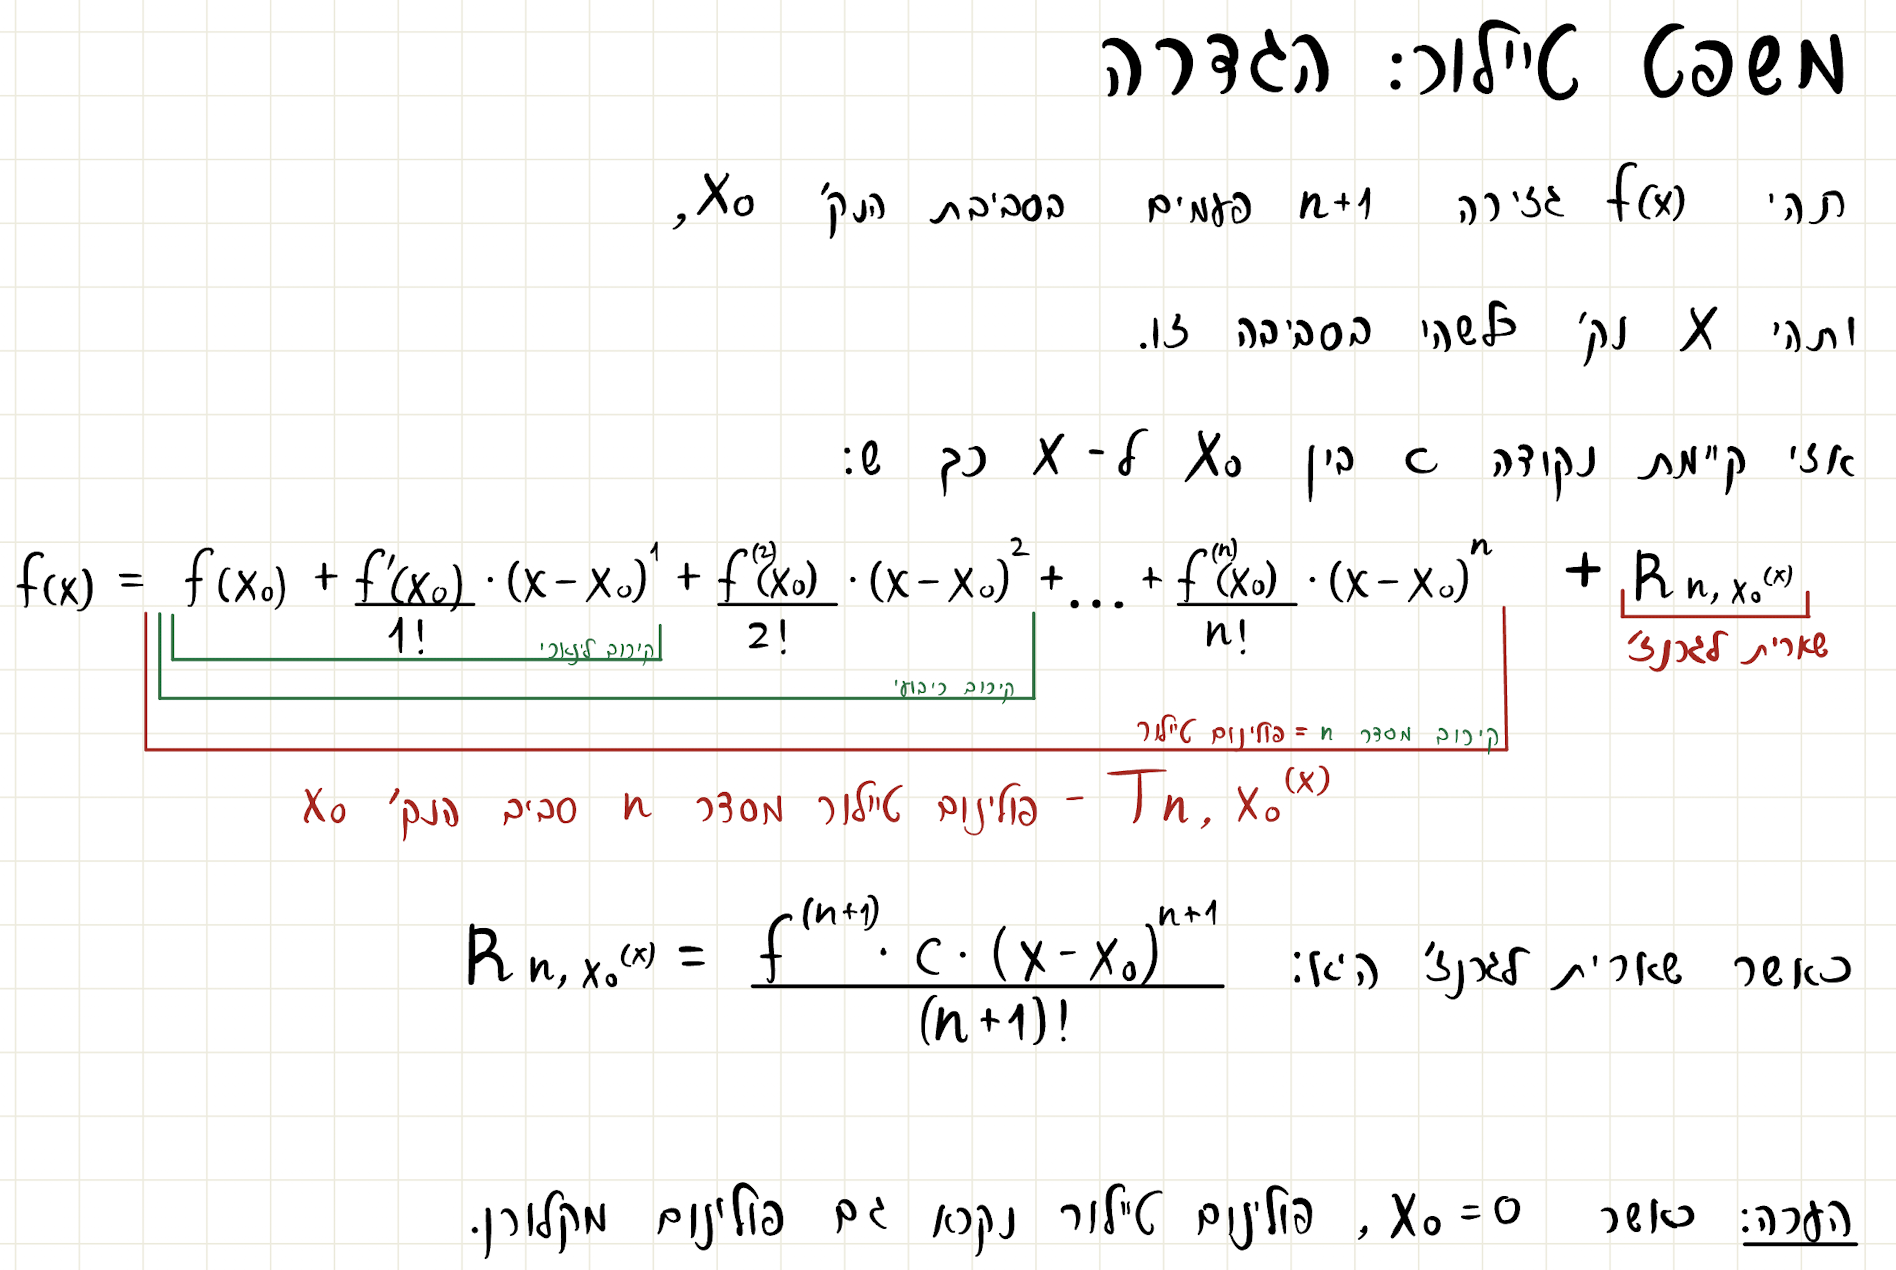 משפט טיילור: הגדרה
תהי f(x) גזירה n+1 פעמים בסביבת הנק' x₀,
ותהי x נק' כלשהי בסביבה זו.
אזי קיימת נקודה c בין x₀ ל-x כך ש:
f(x) = f(x₀) + f'(x₀)/1! · (x-x₀)¹ + f⁽²⁾(x₀)/2! · (x-x₀)² + ... + f⁽ⁿ⁾(x₀)/n! · (x-x₀)ⁿ + R n, x₀(x)
קירוב לינארי
שארית לגרנז'
קירוב ריבועי
קירוב מסדר n = פולינום טיילור
T n, x₀(x) - פולינום טיילור מסדר n סביב הנק' x₀
כאשר שארית לגרנז' היא: R n, x₀(x) = f⁽ⁿ⁺¹⁾ · c · (x-x₀)ⁿ⁺¹/(n+1)!
הערה: כאשר x₀=0, פולינום טיילור נקרא גם פולינום מקלורן.